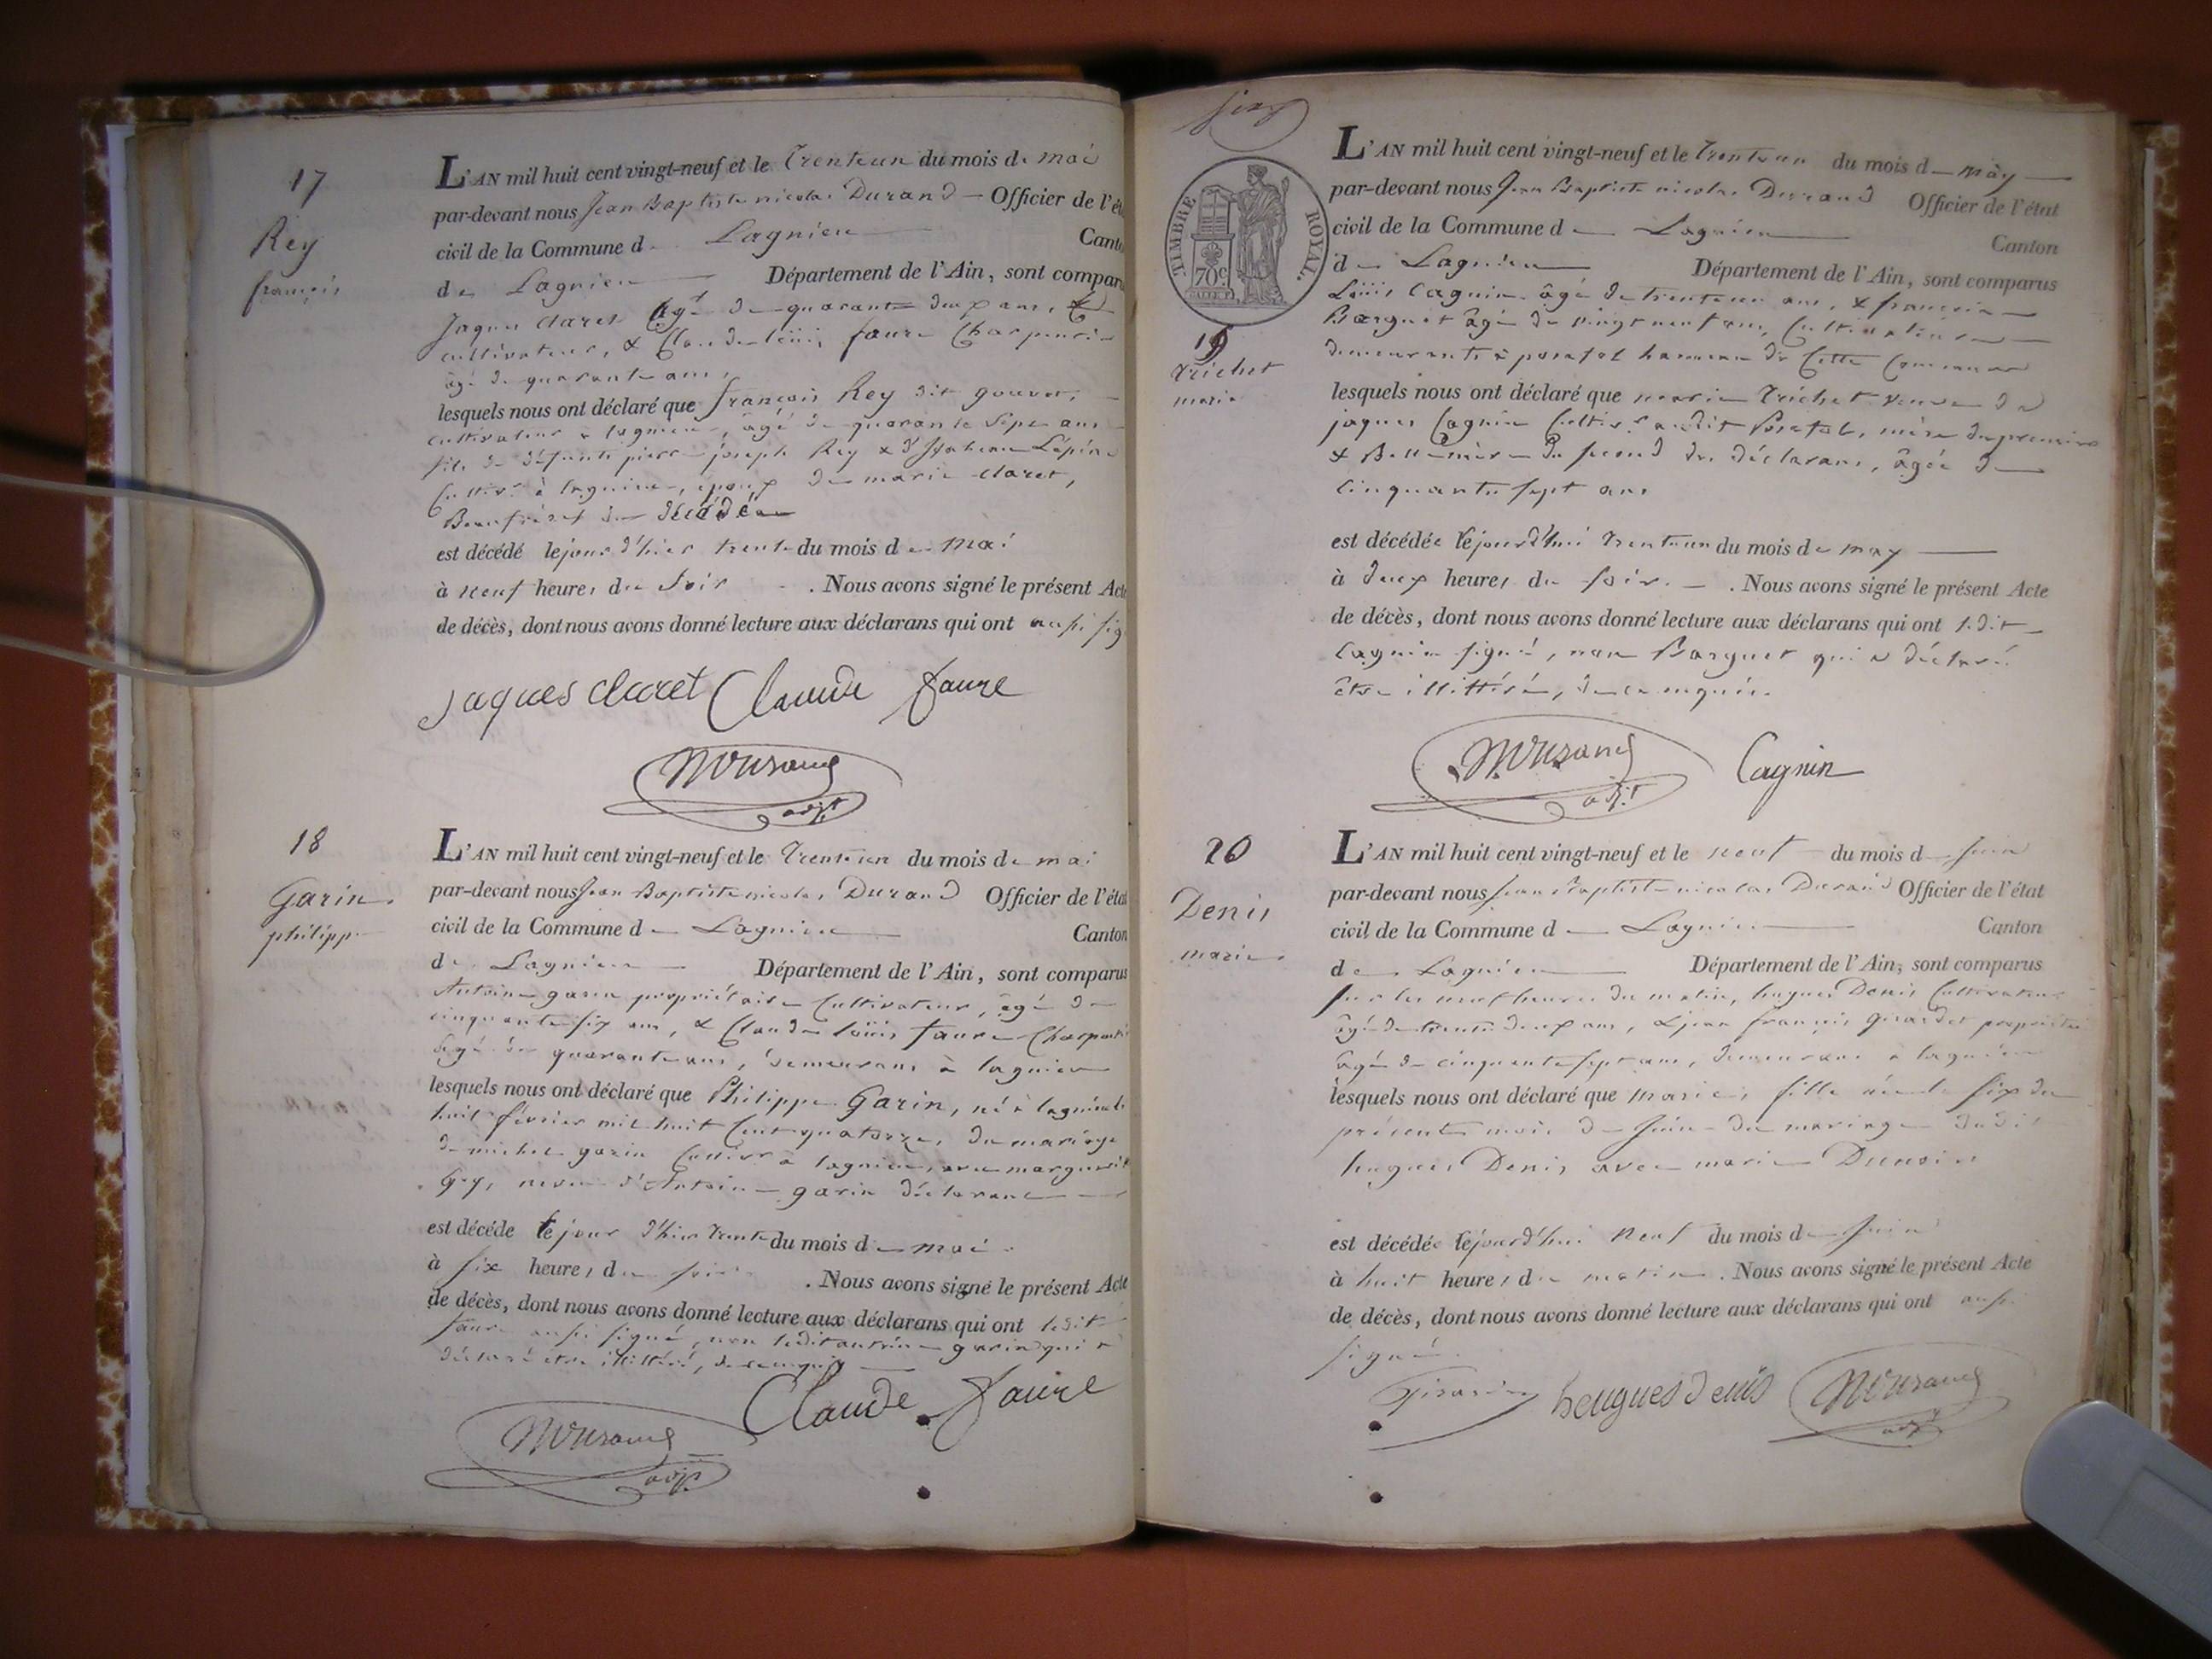 17
Rey
françois
L'AN mil huit cent vingt-neuf et le trente un du mois de mai
par-devant nous Jean Baptiste nicolas Durand — Officier de l'ét
civil de la Commune de Lagnieu Canto
de Lagnieu Département de l'Ain, sont compar
Jaques claret agé de quarante deux ans, &
cultivateur, & Claude loüis faure Charpentier
âgé de quarante ans,
lesquels nous ont déclaré que françois Rey dit gouvet,
cultivateur à lagnieu, âgé de quarante sept ans
fils de défunts pierre joseph Rey & d' Lépine
Cultivrs à lagnieu, époux de marie claret,
Beaufrère décédé
est décédé le jour d'hier trente du mois de mai
à neuf heures du soir . Nous avons signé le présent Acte
de décès, dont nous avons donné lecture aux déclarans qui ont aussi sig
Jaques claret Claude faure
NDurand
adjt
18
Garin
philippe
L'AN mil huit cent vingt-neuf et le trente un du mois de mai
par-devant nous Jean Baptiste nicolas Durand Officier de l'état
civil de la Commune de Lagnieu Canton
de Lagnieu Département de l'Ain, sont comparus
Antoine garin propriétaire Cultivateur, âgé de
cinquante six ans, & Claude loüis faure Charpentier
âgé de quarante ans, demeurans à lagnieu
lesquels nous ont déclaré que Philippe Garin, né à lagnieu le
huit février mil huit Cent quatorze, du mariage
de michel garin Cultivr à lagnieu, avec marguerite
Guy, neveu d'Antoine garin déclarant
est décédé le jour d'hier trente du mois de mai
à six heures du soir . Nous avons signé le présent Acte
de décès, dont nous avons donné lecture aux déclarans qui ont ledit
faure aussi signé, non ledit antoine garin qui a
déclaré être illittéré, de ce enquis
Claude faure
NDurand
adjt
TIMBRE ROYAL.
70c
19
trichet
marie
L'AN mil huit cent vingt-neuf et le trente un du mois de may
par-devant nous Jean Baptiste nicolas Durand Officier de l'état
civil de la Commune de Lagnieu Canton
de Lagnieu Département de l'Ain, sont comparus
Loüis Cagnin âgé de trente un ans, & françois
Barguet âgé de vingt neuf ans, Cultivateurs
demeurants à posafol hameau de Cette Commune
lesquels nous ont déclaré que marie trichet veuve de
jaques Cagnin Cultivr audit Posafol, mère du premier
& Belle mère du second des déclarans, âgée de
cinquante sept ans
est décédée cejourd'hui trente un du mois de may
à deux heures du soir. . Nous avons signé le présent Acte
de décès, dont nous avons donné lecture aux déclarans qui ont ledit
Cagnin signé, non Barguet qui a déclaré
être illittéré, de ce enquis.
NDurand Cagnin
adjt
20
Denis
marie
L'AN mil huit cent vingt-neuf et le neuf du mois de juin
par-devant nous Jean Baptiste nicolas Durand Officier de l'état
civil de la Commune de Lagnieu Canton
de Lagnieu Département de l'Ain, sont comparus
sur les neuf heures du matin, hugues Denis Cultivateur
âgé de trente deux ans, & jean françois girardet propriétaire
âgé de cinquante sept ans, demeurans à lagnieu
lesquels nous ont déclaré que marie, fille née le six du
présent mois de Juin du mariage dudit
hugues Denis avec marie
est décédée cejourd'hui neuf du mois de juin
à huit heures du matin . Nous avons signé le présent Acte
de décès, dont nous avons donné lecture aux déclarans qui ont aussi
signé.
heugues denis NDurand
adjt